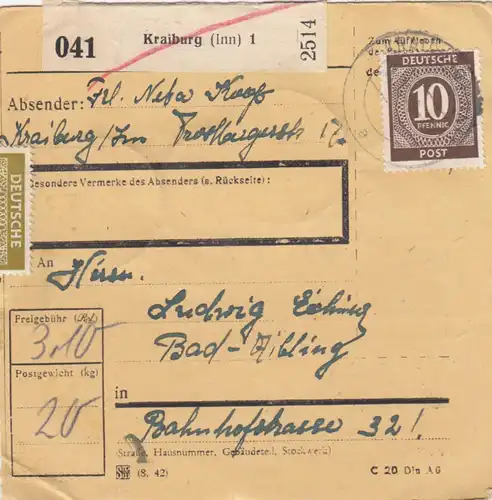 041
Kraiburg (Inn) 1
2514
Zum Aufkleben
der
de
DEUTSCHE
10
PFENNIG
POST
Absender: Frl. Neta
Kraiburg/Inn 17.
Besondere Vermerke des Absenders (s. Rückseite):
DEUTSCHE
An Herrn.
Ludwig
Bad-Aibling
Freigebühr (Rℳ)
3,10
Postgewicht (kg)
20
in
Bahnhofstrasse 32!
(Straße, Hausnummer, Gebäudeteil, Stockwerk)
(8. 42)
C 20 Din A6